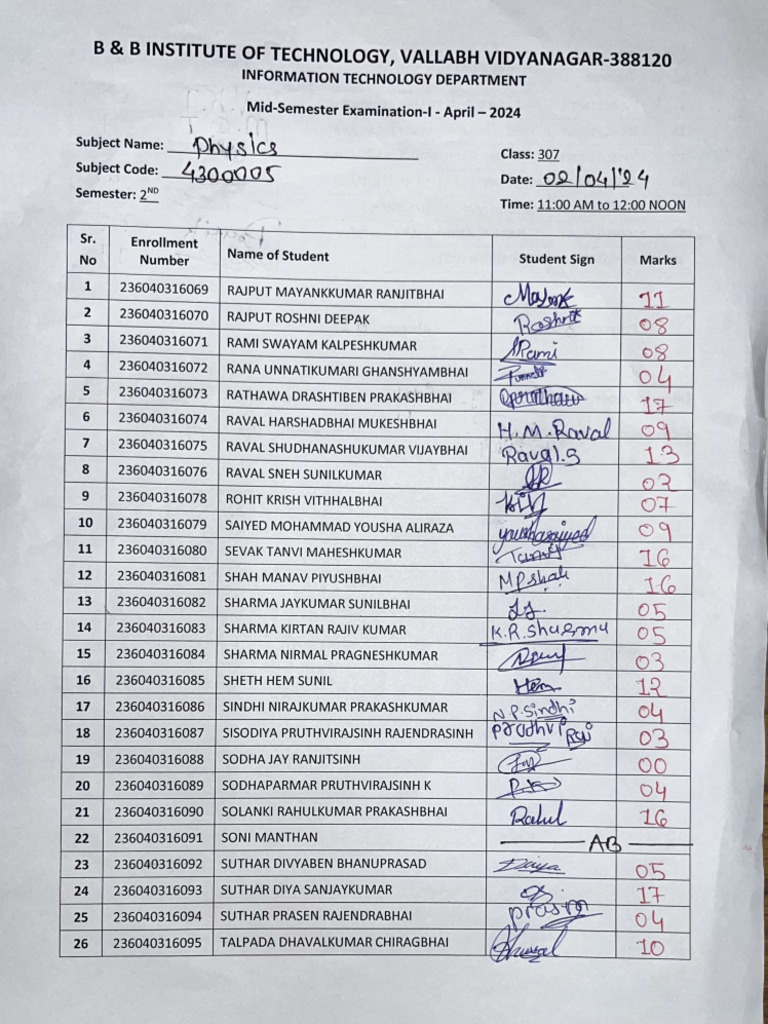 B & B INSTITUTE OF TECHNOLOGY, VALLABH VIDYANAGAR-388120
INFORMATION TECHNOLOGY DEPARTMENT
Mid-Semester Examination-I - April – 2024
Subject Name: Physics
Class: 307
Subject Code: 4300005
Date: 02/04/'24
Semester: 2ND
Time: 11:00 AM to 12:00 NOON
Sr. No Enrollment Number Name of Student Student Sign Marks
1 236040316069 RAJPUT MAYANKKUMAR RANJITBHAI Mayank 11
2 236040316070 RAJPUT ROSHNI DEEPAK Roshni 08
3 236040316071 RAMI SWAYAM KALPESHKUMAR SRami 08
4 236040316072 RANA UNNATIKUMARI GHANSHYAMBHAI 04
5 236040316073 RATHAWA DRASHTIBEN PRAKASHBHAI 17
6 236040316074 RAVAL HARSHADBHAI MUKESHBHAI H.M.Raval 09
7 236040316075 RAVAL SHUDHANASHUKUMAR VIJAYBHAI Raval.S 13
8 236040316076 RAVAL SNEH SUNILKUMAR 02
9 236040316078 ROHIT KRISH VITHHALBHAI 07
10 236040316079 SAIYED MOHAMMAD YOUSHA ALIRAZA 09
11 236040316080 SEVAK TANVI MAHESHKUMAR Tanvi 16
12 236040316081 SHAH MANAV PIYUSHBHAI MPshah 16
13 236040316082 SHARMA JAYKUMAR SUNILBHAI 05
14 236040316083 SHARMA KIRTAN RAJIV KUMAR K.R.Sharma 05
15 236040316084 SHARMA NIRMAL PRAGNESHKUMAR 03
16 236040316085 SHETH HEM SUNIL Hem 12
17 236040316086 SINDHI NIRAJKUMAR PRAKASHKUMAR N.P.Sindhi 04
18 236040316087 SISODIYA PRUTHVIRAJSINH RAJENDRASINH 03
19 236040316088 SODHA JAY RANJITSINH 00
20 236040316089 SODHAPARMAR PRUTHVIRAJSINH K 04
21 236040316090 SOLANKI RAHULKUMAR PRAKASHBHAI Rahul 16
22 236040316091 SONI MANTHAN AB
23 236040316092 SUTHAR DIVYABEN BHANUPRASAD 05
24 236040316093 SUTHAR DIYA SANJAYKUMAR 17
25 236040316094 SUTHAR PRASEN RAJENDRABHAI 04
26 236040316095 TALPADA DHAVALKUMAR CHIRAGBHAI 10